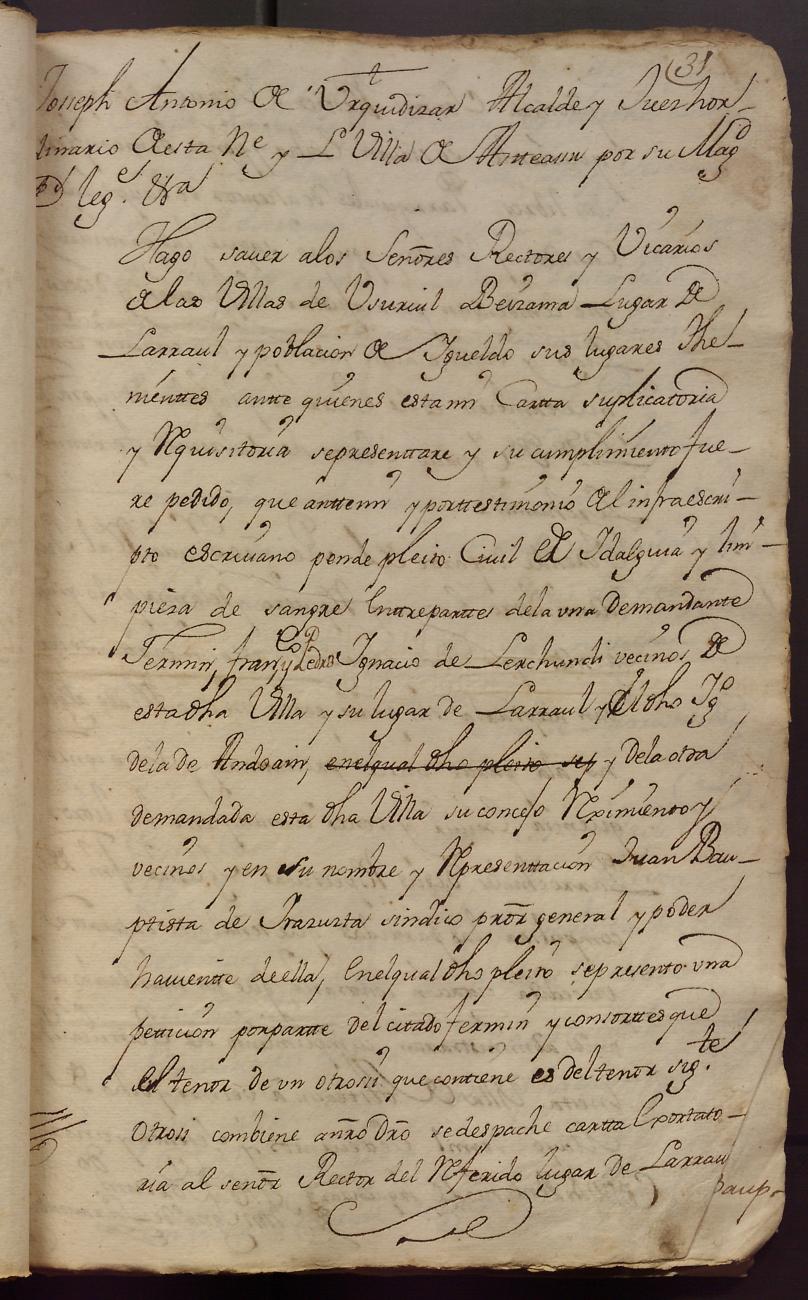 (31
Josseph Antonio de Urquidizar Alcalde y Juez hor_
dinario de esta Ne y Ll Villa de Asteasu por su Magd
leg.e &ra
Hago sauer alos Señores Rectores y Vicarios
de las Villas de Usuruil Beizama Lugar de
Larraul y poblacion de Igueldo sus lugares The_
nienttes antte quienes esta mi Cartta suplicatoria
y Requisitoria se presenttare y su cumplimiento fue_
re pedido, que antte mi y por ttestimonio del infraescri_
pto escriuano pende pleito Ciuil de Idalguia y lim_
pieza de sangre Entre parttes de la vna Demandante
Fermin, franco y Pedro Ignacio de Lerchundi vecinos de
esta dha Villa y su lugar de Larraul y el dho Igo
dela de Andoain, enelqual dho pleito sep y dela otra
demandada esta dha Villa su concejo Reximiento y
vecinos y en su nombre y Representtacion Juan Bau_
ptista de Irazuzta sindico pror general y poder
hauientte de ella, Enelqual dho pleito se presento vna
petticion por partte del citado fermin y consorttes que
el tenor de vn otrossi que contiene es del tenor sig.te
Otrosi combiene a nro Dro se despache cartta Exortato_
ria al señor Rector del Referido lugar de Larrau